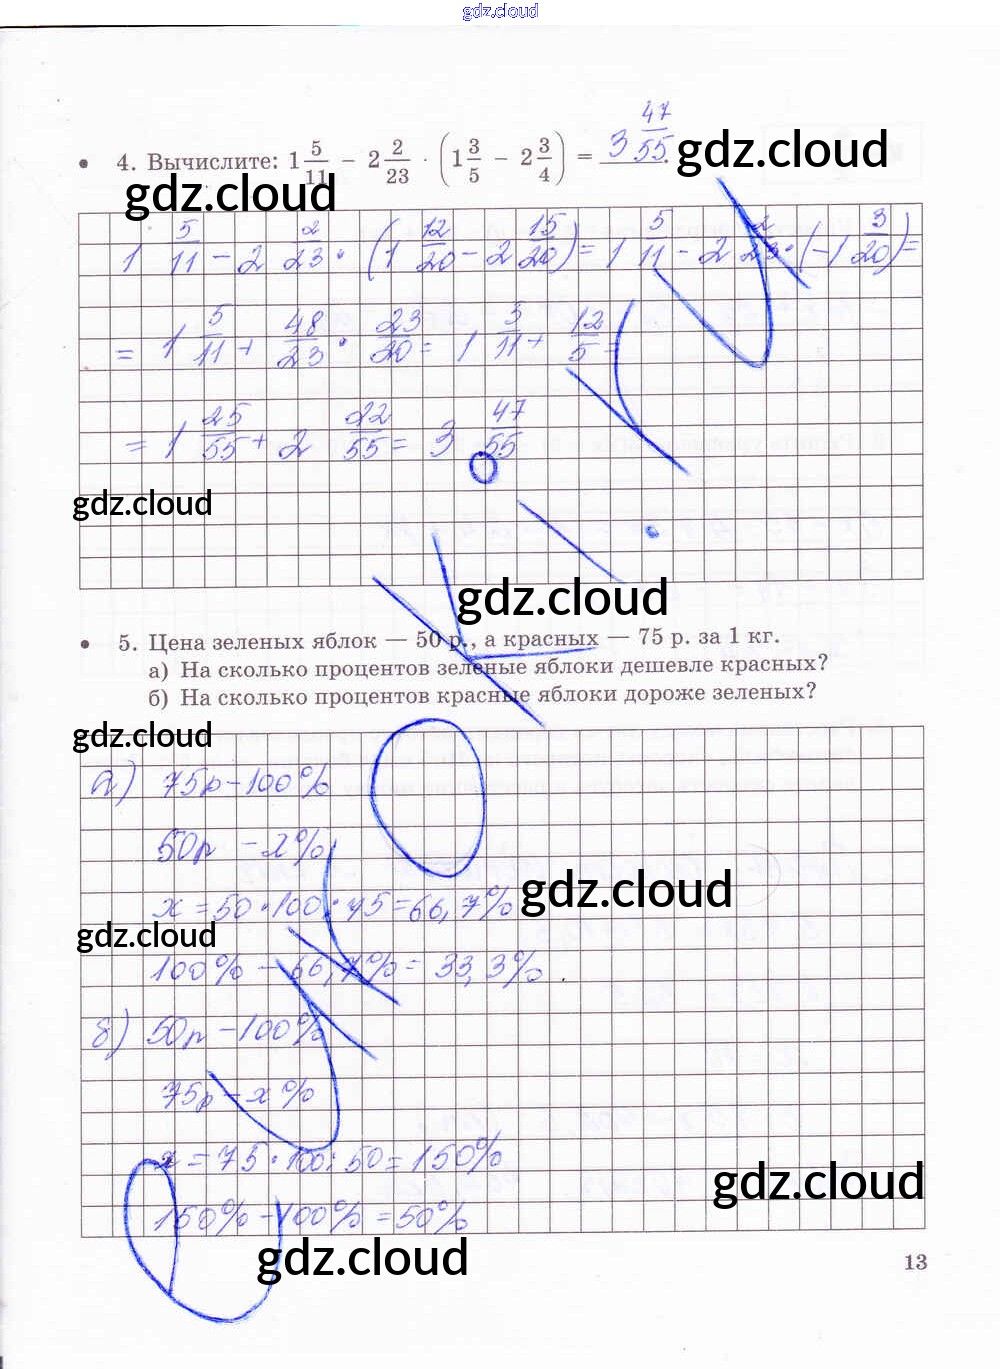 gdz.cloud
• 4. Вычислите: 1 5/11 − 2 2/23 · (1 3/5 − 2 3/4) = 3 47/55.
gdz.cloud
gdz.cloud
1 5/11 − 2 2/23 · (1 12/20 − 2 15/20) = 1 5/11 − 2 2/23 · (−1 3/20) =
= 1 5/11 + 48/23 · 23/20 = 1 3/11 + 12/5 =
= 1 25/55 + 2 22/55 = 3 47/55
gdz.cloud
gdz.cloud
• 5. Цена зеленых яблок — 50 р., а красных — 75 р. за 1 кг.
а) На сколько процентов зеленые яблоки дешевле красных?
б) На сколько процентов красные яблоки дороже зеленых?
gdz.cloud
а) 75р − 100%
50р − х%
gdz.cloud
х = 50 · 100 : 75 = 66,7%
gdz.cloud
100% − 66,7% = 33,3%.
б) 50р − 100%
75р − х%
х = 75 · 100 : 50 = 150%
gdz.cloud
150% − 100% = 50%
gdz.cloud
13